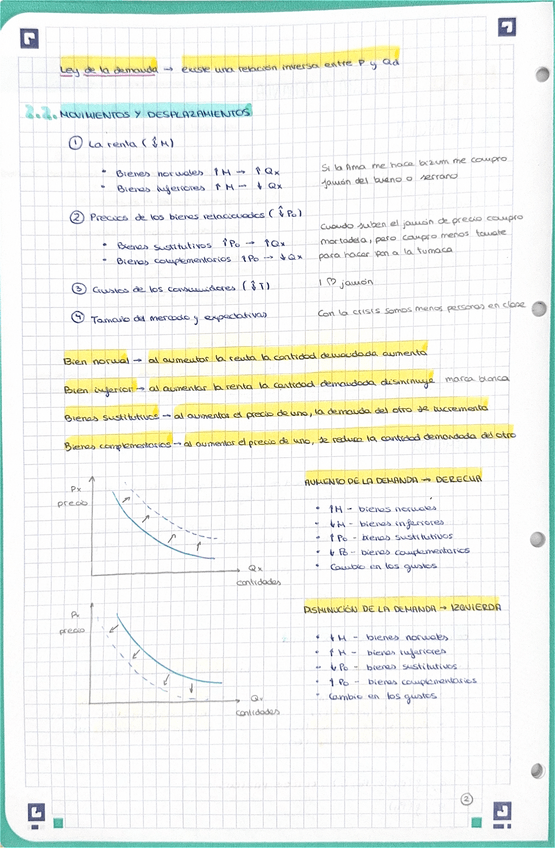 Ley de la demanda → existe una relación inversa entre P y Qd
2.2. MOVIMIENTOS Y DESPLAZAMIENTOS
① La renta (↕M)
• Bienes normales ↑M → ↑Qx
• Bienes inferiores ↑M → ↓Qx
Si la Anna me hace bizum me compro
jamón del bueno o serrano
② Precios de los bienes relacionados (↕Po)
• Bienes sustitutivos ↑Po → ↑Qx
• Bienes complementarios ↑Po → ↓Qx
Cuando suben el jamón de precio compro
mortadela, pero compro menos tomate
para hacer pan a la tumaca
③ Gustos de los consumidores (↕T)
I ♡ jamón
④ Tamaño del mercado y expectativas
Con la crisis somos menos personas en clase
Bien normal → al aumentar la renta la cantidad demandada aumenta
Bien inferior → al aumentar la renta la cantidad demandada disminuye marca blanca
Bienes sustitutivos → al aumentar el precio de uno, la demanda del otro se incrementa
Bienes complementarios → al aumentar el precio de uno, se reduce la cantidad demandada del otro
Px
precio
Qx
cantidades
AUMENTO DE LA DEMANDA → DERECHA
• ↑M - bienes normales
• ↓M - bienes inferiores
• ↑Po - bienes sustitutivos
• ↓Po - bienes complementarios
• Cambio en los gustos
Px
precio
Qx
cantidades
DISMINUCIÓN DE LA DEMANDA → IZQUIERDA
• ↓M - bienes normales
• ↑M - bienes inferiores
• ↓Po - bienes sustitutivos
• ↑Po - bienes complementarios
• Cambio en los gustos
②